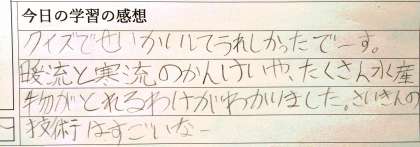 今日の学習の感想
クイズでせいかいしてうれしかったでーす。
暖流と寒流のかんけいや、たくさん水産
物がとれるわけがわかりました。さいきんの
技術はすごいなー